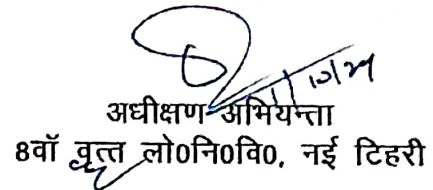 अधीक्षण अभियन्ता
8वॉ वृत्त लो0नि0वि0, नई टिहरी